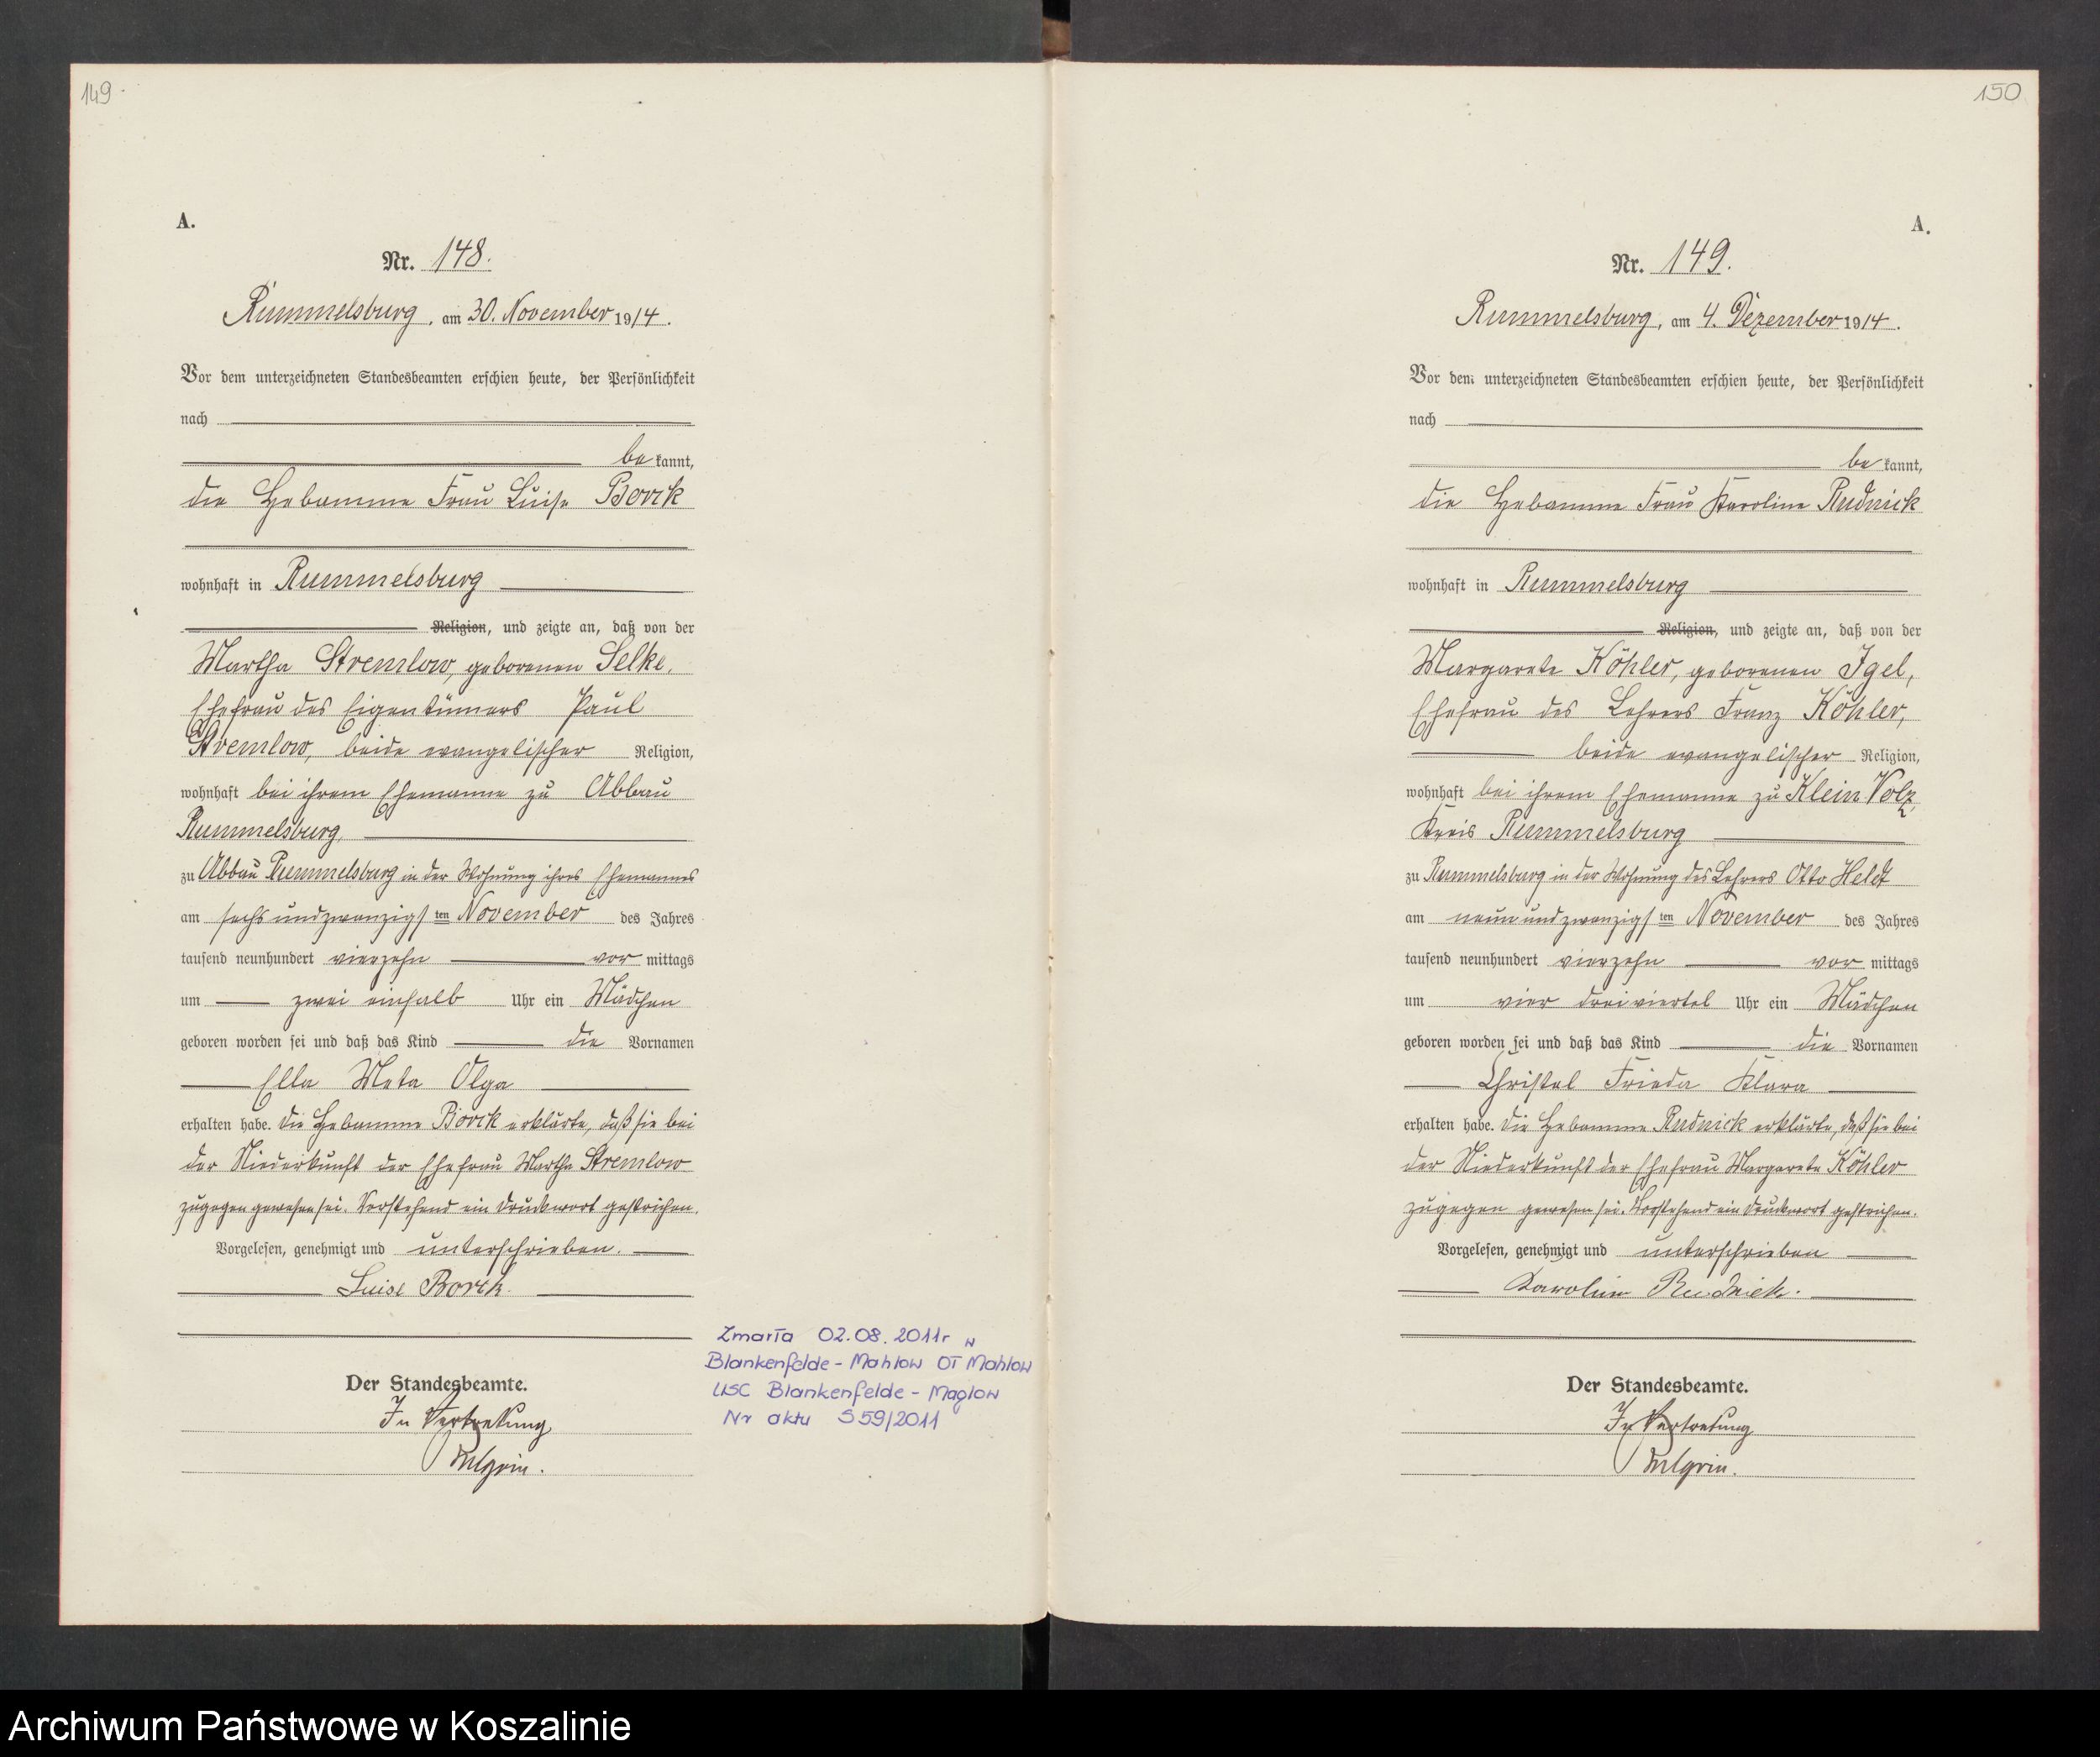 149
A.
Nr. 148.
Rummelsburg, am 30. November 1914.
Vor dem unterzeichneten Standesbeamten erschien heute, der Persönlichkeit
nach
be kannt,
die Hebamme Frau Luise Borck
wohnhaft in Rummelsburg
Religion, und zeigte an, daß von der
Martha Stremlow, geborenen Selke,
Ehefrau des Eigentümers Paul
Stremlow, beide evangelischer Religion,
wohnhaft bei ihrem Ehemanne zu Abbau
Rummelsburg,
zu Abbau Rummelsburg in der Wohnung ihres Ehemannes
am sechsundzwanzigsten November des Jahres
tausend neunhundert vierzehn vor mittags
um zwei einhalb Uhr ein Mädchen
geboren worden sei und daß das Kind die Vornamen
Ella Meta Olga
erhalten habe. Die Hebamme Borck erklärte, daß sie bei
der Niederkunft der Ehefrau Martha Stremlow
zugegen gewesen sei. Vorstehend ein Druckwort gestrichen.
Vorgelesen, genehmigt und unterschrieben.
Luise Borck.
Der Standesbeamte.
In Vertretung
Zmarła 02.08.2011r w
Blankenfelde - Mahlow OT Mahlow
USC Blankenfelde - Maglow
Nr aktu S 59/2011
150
A.
Nr. 149.
Rummelsburg, am 4. Dezember 1914.
Vor dem unterzeichneten Standesbeamten erschien heute, der Persönlichkeit
nach
be kannt,
die Hebamme Frau Karoline Rudnick
wohnhaft in Rummelsburg
Religion, und zeigte an, daß von der
Margarete Köhler, geborenen Igel,
Ehefrau des Lehrers Franz Köhler,
beide evangelischer Religion,
wohnhaft bei ihrem Ehemanne zu Klein Volz,
Kreis Rummelsburg
zu Rummelsburg in der Wohnung des Lehrers Otto Heldt
am neunundzwanzigsten November des Jahres
tausend neunhundert vierzehn vor mittags
um vier dreiviertel Uhr ein Mädchen
geboren worden sei und daß das Kind die Vornamen
Christel Frieda Klara
erhalten habe. Die Hebamme Rudnick erklärte, daß sie bei
der Niederkunft der Ehefrau Margarete Köhler
zugegen gewesen sei. Vorstehend ein Druckwort gestrichen.
Vorgelesen, genehmigt und unterschrieben
Karoline Rudnick.
Der Standesbeamte.
In Vertretung
Archiwum Państwowe w Koszalinie